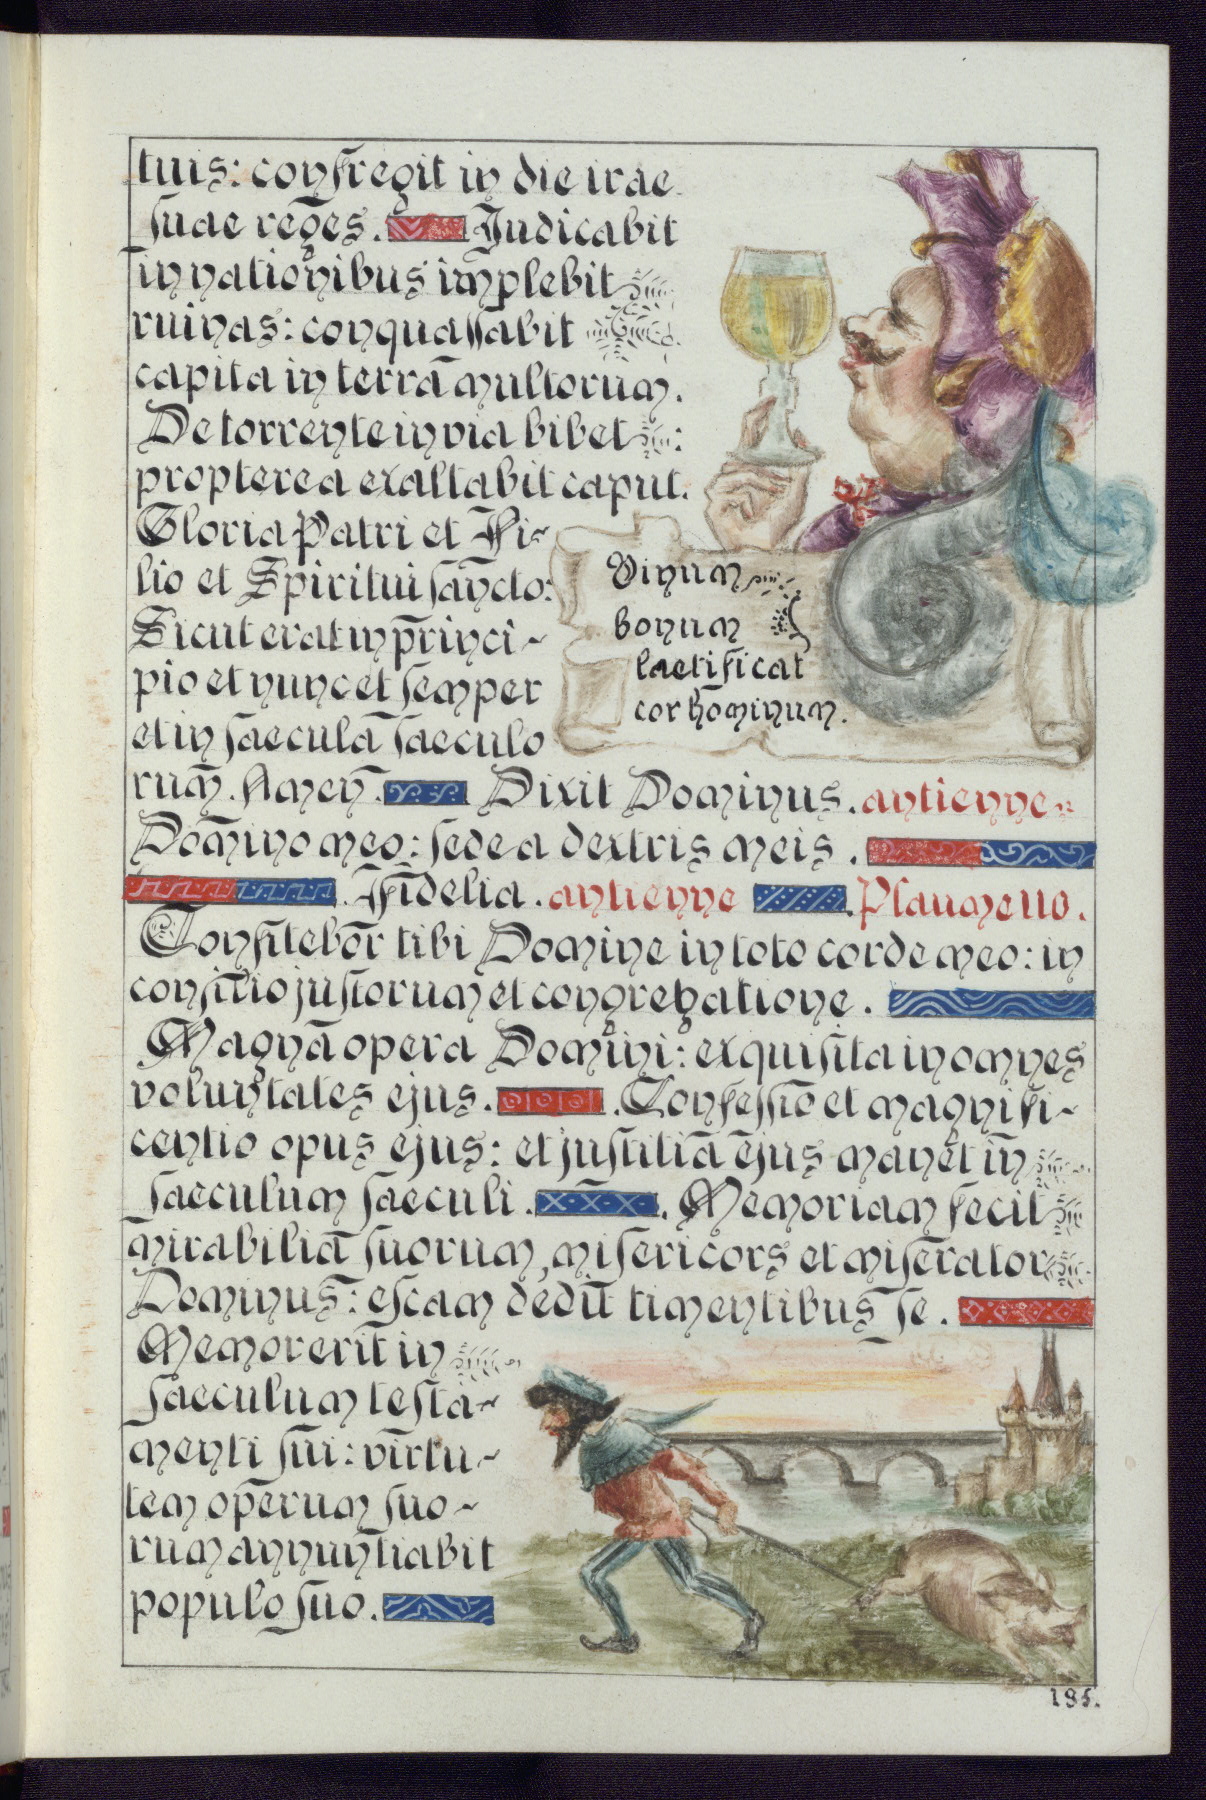 tuis: confregit in die irae
suae reges. Judicabit
in nationibus implebit
ruinas: conquassabit
capita in terrā multorum.
De torrente in via bibet:
propterea exaltabit caput.
Gloria Patri et Fi-
lio et Spiritui sancto:
Sicut erat in princi-
pio et nunc et semper
et in saecula saeculo
rum. Amen. Dixit Dominus. antienne
Vinum
bonum
laetificat
cor hominum.
Domino meo: sede a dextris meis.
Fidelia. antienne Psaume 110.
Confitebor tibi Domine in toto corde meo: in
consilio justorum et congregatione.
Magna opera Domini: exquisita in omnes
voluntates ejus. Confessio et magnifi-
centio opus ejus: et justitia ejus manet in
saeculum saeculi. Memoriam fecit
mirabiliā suorum, misericors et miserator
Dominus: escam dedit timentibus se.
Memor erit in
saeculum testa-
menti sui: virtu-
tem operum suo-
rum annuntiabit
populo suo.
195.